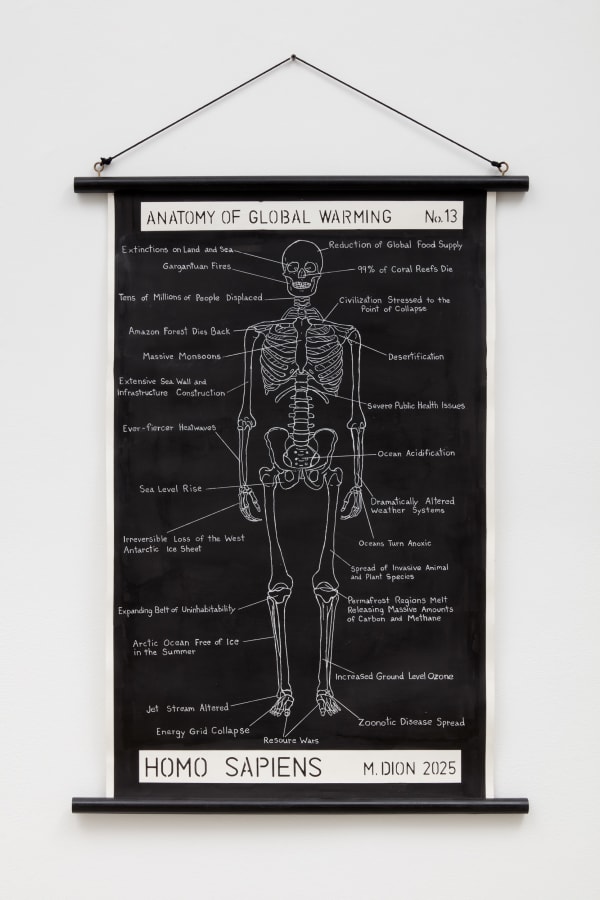 ANATOMY OF GLOBAL WARMING No.13
Extinctions on Land and Sea
Reduction of Global Food Supply
Gargantuan Fires
99% of Coral Reefs Die
Tens of Millions of People Displaced
Civilization Stressed to the
Point of Collapse
Amazon Forest Dies Back
Massive Monsoons
Desertification
Extensive Sea Wall and
Infrastructure Construction
Severe Public Health Issues
Ever-fiercer Heatwaves
Ocean Acidification
Sea Level Rise
Dramatically Altered
Weather Systems
Irreversible Loss of the West
Antarctic Ice Sheet
Oceans Turn Anoxic
Spread of Invasive Animal
and Plant Species
Expanding Belt of Uninhabitability
Permafrost Regions Melt
Releasing Massive Amounts
of Carbon and Methane
Arctic Ocean Free of Ice
in the Summer
Increased Ground Level Ozone
Jet Stream Altered
Zoonotic Disease Spread
Energy Grid Collapse
Resoure Wars
HOMO SAPIENS M.DION 2025